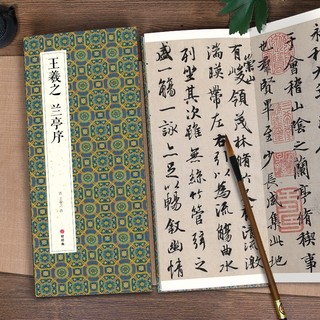 王羲之 兰亭序
初
于會稽山陰之蘭亭脩稧事
賢畢至少長咸集此地
有崇山峻領茂林脩
清流激
湍暎帶左右引以為流觴曲水
列坐其次雖無絲竹管弦之
盛一觴一詠亦足以暢敘幽情